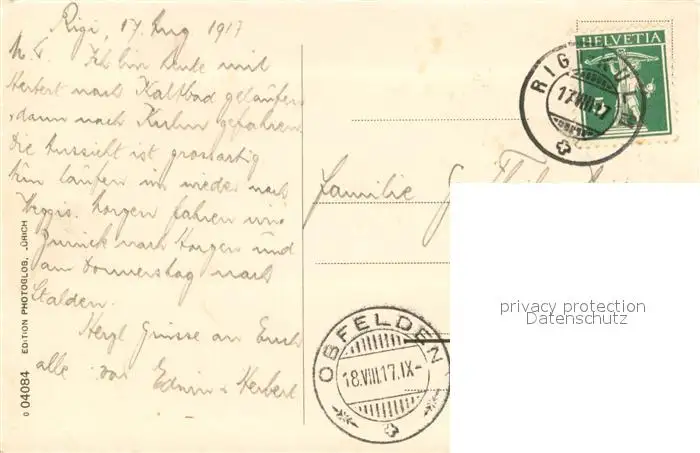 Rigi, 17. Aug 1917
M. L. Ich bin heute mit
Herbert nach Kaltbad gelaufen
dann nach Kulm gefahren.
Die Aussicht ist grossartig
Nun laufen wir wieder nach
Weggis. Morgen fahren wir
Zurück nach Horgen und
am Donnerstag nach
Stalden.
Herzl Grüsse an Euch
alle von Edwin & Herbert
Familie G.
HELVETIA
RIGI-KULM
17.VIII.17
OBFELDEN
18.VIII.17.IX-
0 04084 EDITION PHOTOGLOB, ZÜRICH
privacy protection
Datenschutz